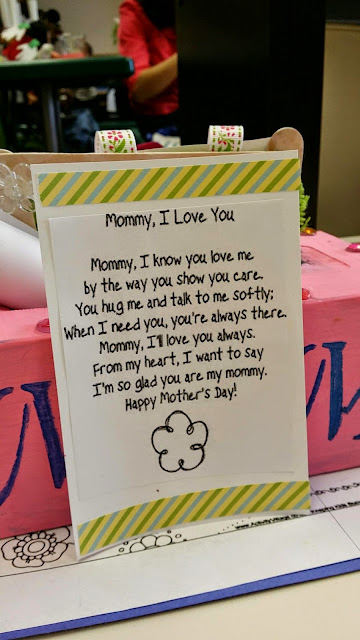 Mommy, I Love You
Mommy, I know you love me
by the way you show you care.
You hug me and talk to me softly;
When I need you, you're always there.
Mommy, I'll love you always.
From my heart, I want to say
I'm so glad you are my mommy.
Happy Mother's Day!